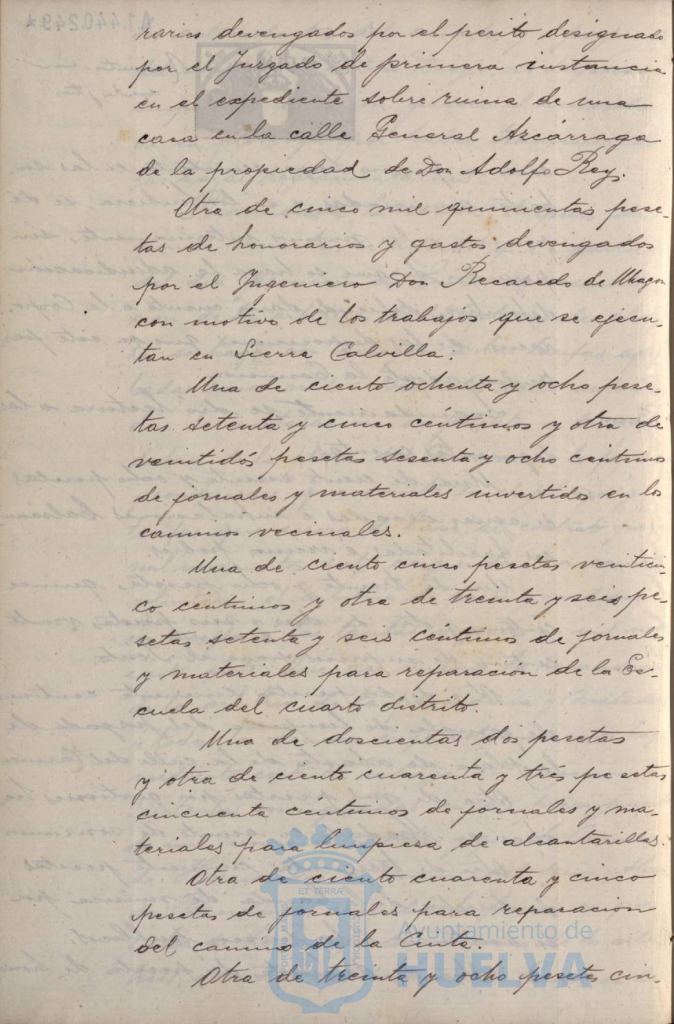 rarios devengados por el perito designado
por el Juzgado de primera instancia
en el expediente sobre ruina de una
casa en la calle General Azcárraga
de la propiedad de Don Adolfo Rey.
Otra de cinco mil quinientas pese-
tas de honorarios y gastos devengados
por el Ingeniero Don Recaredo de Uhagon
con motivo de los trabajos que se ejecu-
tan en Sierra Calvilla.
Una de ciento ochenta y ocho pese-
tas setenta y cinco céntimos y otra de
veintidós pesetas sesenta y ocho céntimos
de jornales y materiales invertidos en los
caminos vecinales.
Una de ciento cinco pesetas veintici-
co céntimos y otra de treinta y seis pe-
setas setenta y seis céntimos de jornales
y materiales para reparación de la Es-
cuela del cuarto distrito.
Una de doscientas dos pesetas
y otra de ciento cuarenta y trés pesetas
cincuenta céntimos de jornales y ma-
teriales para limpiesa de alcantarillas.
Otra de ciento cuarenta y cinco
pesetas de jornales para reparacion
del camino de la Cinta.
Otra de treinta y ocho pesetas cin-
A1440249*
ET TERRÆ
Ayuntamiento de
HUELVA